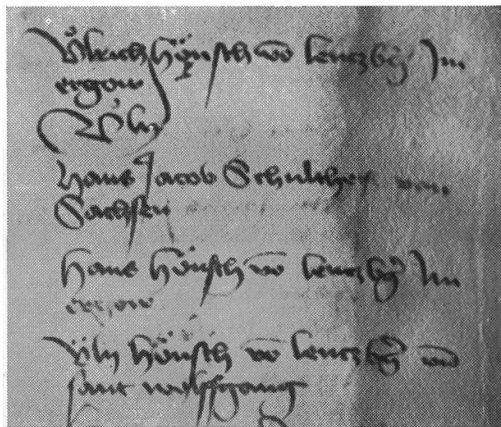 Ůlrich Hönsch vō lentzbg Im
ergow
Ůly
Hans Jacob Schulthes von
Sachsen
Hans Hönsch vō lentzbg Im
ergow
Ůly Hönsch vō lentzbg vō
sant wolffgang